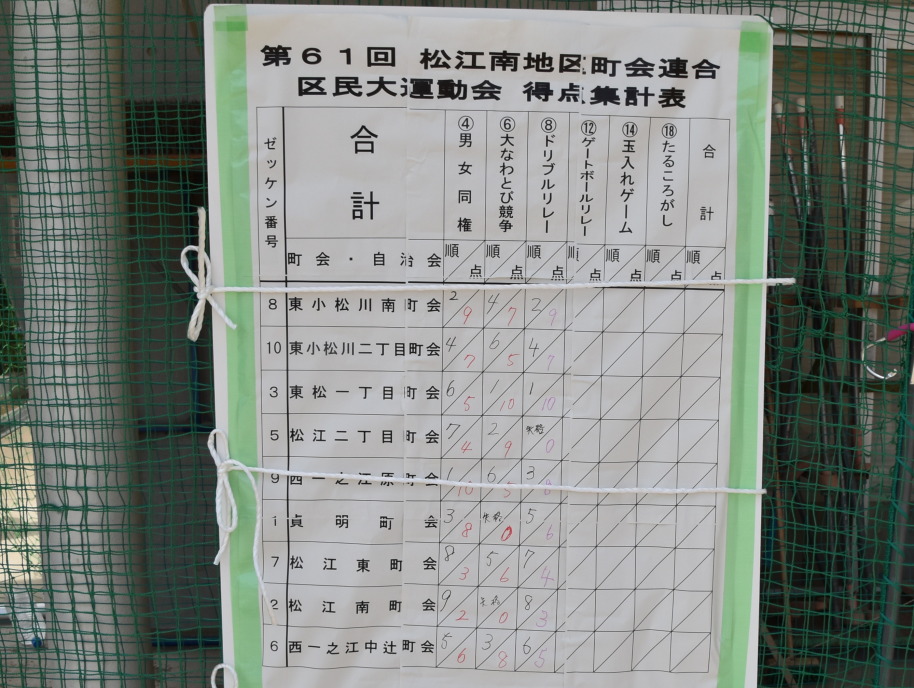 第61回 松江南地区町会連合
区民大運動会 得点集計表
ゼッケン番号 合計 ④男女同権 ⑥大なわとび競争 ⑧ドリブルリレー ⑫ゲートボールリレー ⑭玉入れゲーム ⑱たるころがし 合計
町会・自治会 順 点 順 点 順 点 順 点 順 点 順 点 順 点
8 東小松川南町会 2 9 4 7 2 9
10 東小松川二丁目町会 4 7 6 5 4 7
3 東松一丁目町会 6 5 1 10 1 10
5 松江二丁目町会 7 4 2 9 失格 0
9 西一之江原町会 1 10 6 5 3 8
1 貞明町会 3 8 失格 0 5 6
7 松江東町会 8 3 5 6 7 4
2 松江南町会 9 2 失格 0 8 3
6 西一之江中辻町会 5 6 3 8 6 5